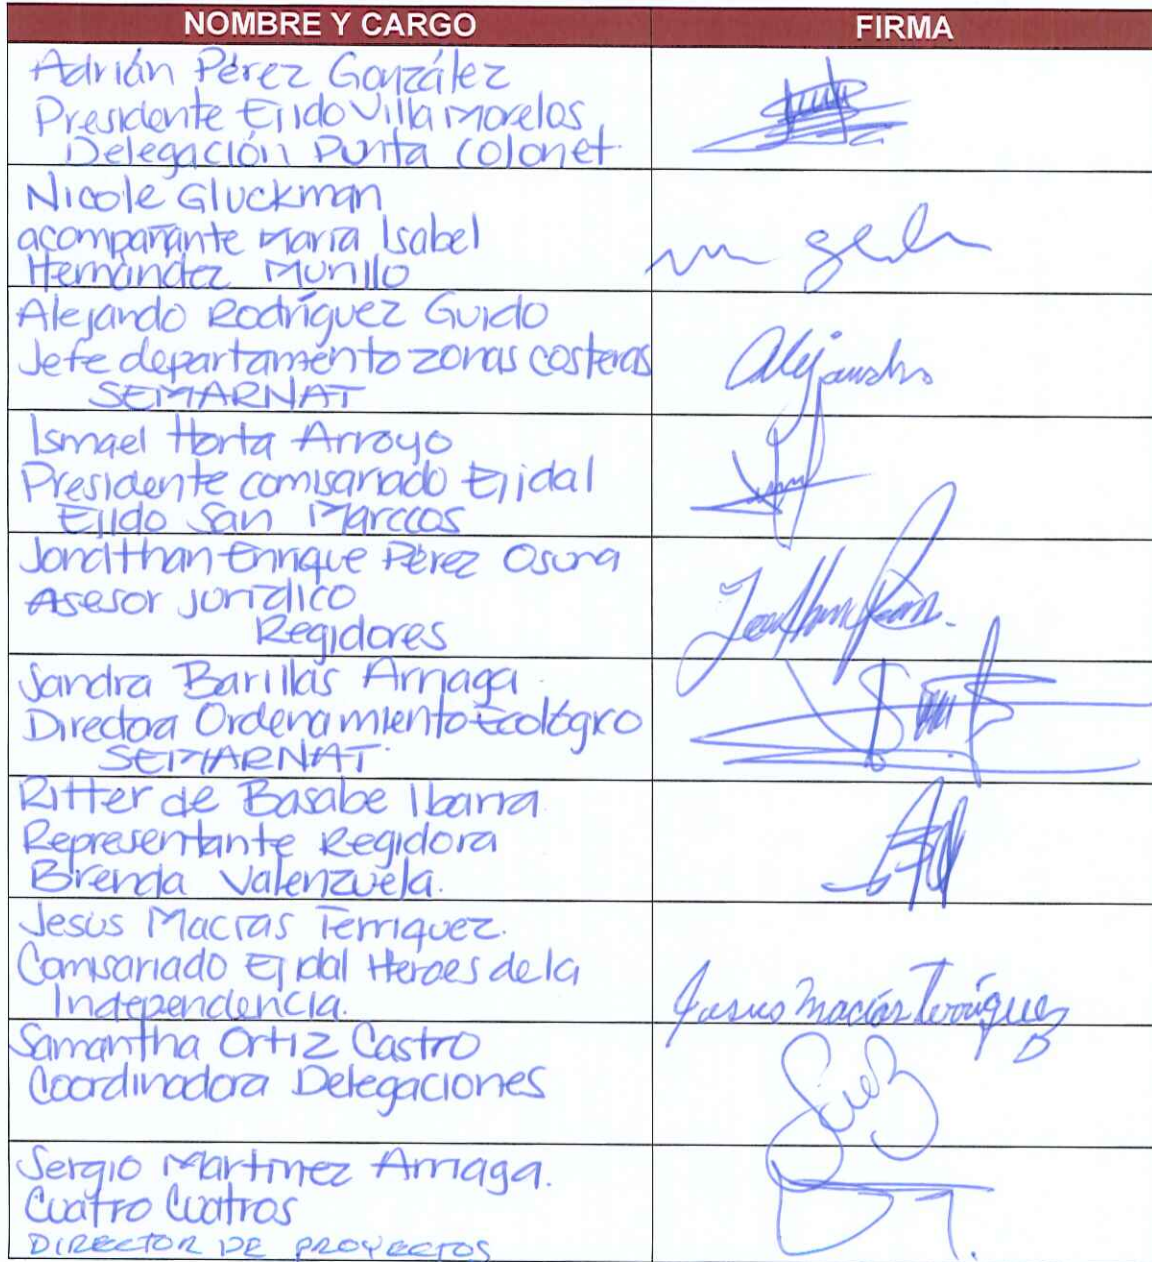 NOMBRE Y CARGO
FIRMA
Adrián Pérez González
Presidente Ejido Villa Morelos
Delegación Punta Colonet
Nicole Gluckman
acompañante María Isabel
Hernández Murillo
Alejando Rodríguez Guido
Jefe departamento zonas costeras
SEMARNAT
Alejandro
Ismael Horta Arroyo
Presidente comisariado Ejidal
Ejido San Marccos
Jonathhan Enrique Pérez Osuna
Asesor jurídico
Regidores
Sandra Barillas Arriaga
Directora Ordenamiento Ecológico
SEMARNAT.
Ritter de Basabe Ibarra
Representante Regidora
Brenda Valenzuela.
Jesús Macías Terriquez.
Comisariado Ejidal Heroes de la
Independencia.
Jesus Macías Terríquez
Samantha Ortiz Castro
Coordinadora Delegaciones
Sergio Martínez Arriaga.
Cuatro Cuatros
DIRECTOR DE PROYECTOS